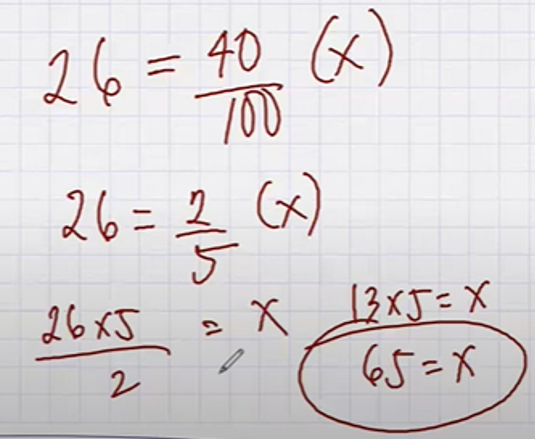 26 = 40/100 (x)
26 = 2/5 (x)
26 x 5 / 2 = x
13 x 5 = x
65 = x